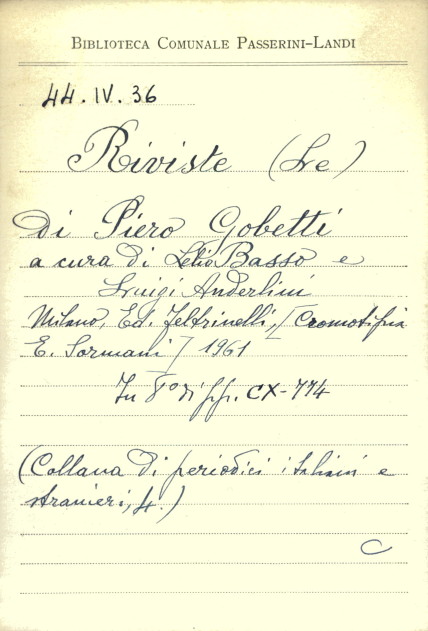 BIBLIOTECA COMUNALE PASSERINI-LANDI
44.IV.36
Riviste (Le)
di Piero Gobetti
a cura di Lelio Basso e
Luigi Anderlini
Milano, Ed. Feltrinelli, [Cromotipia
E. Sormani] 1961
In 8° di pp. CX-774
(Collana di periodici italiani e
stranieri, 4.)
C